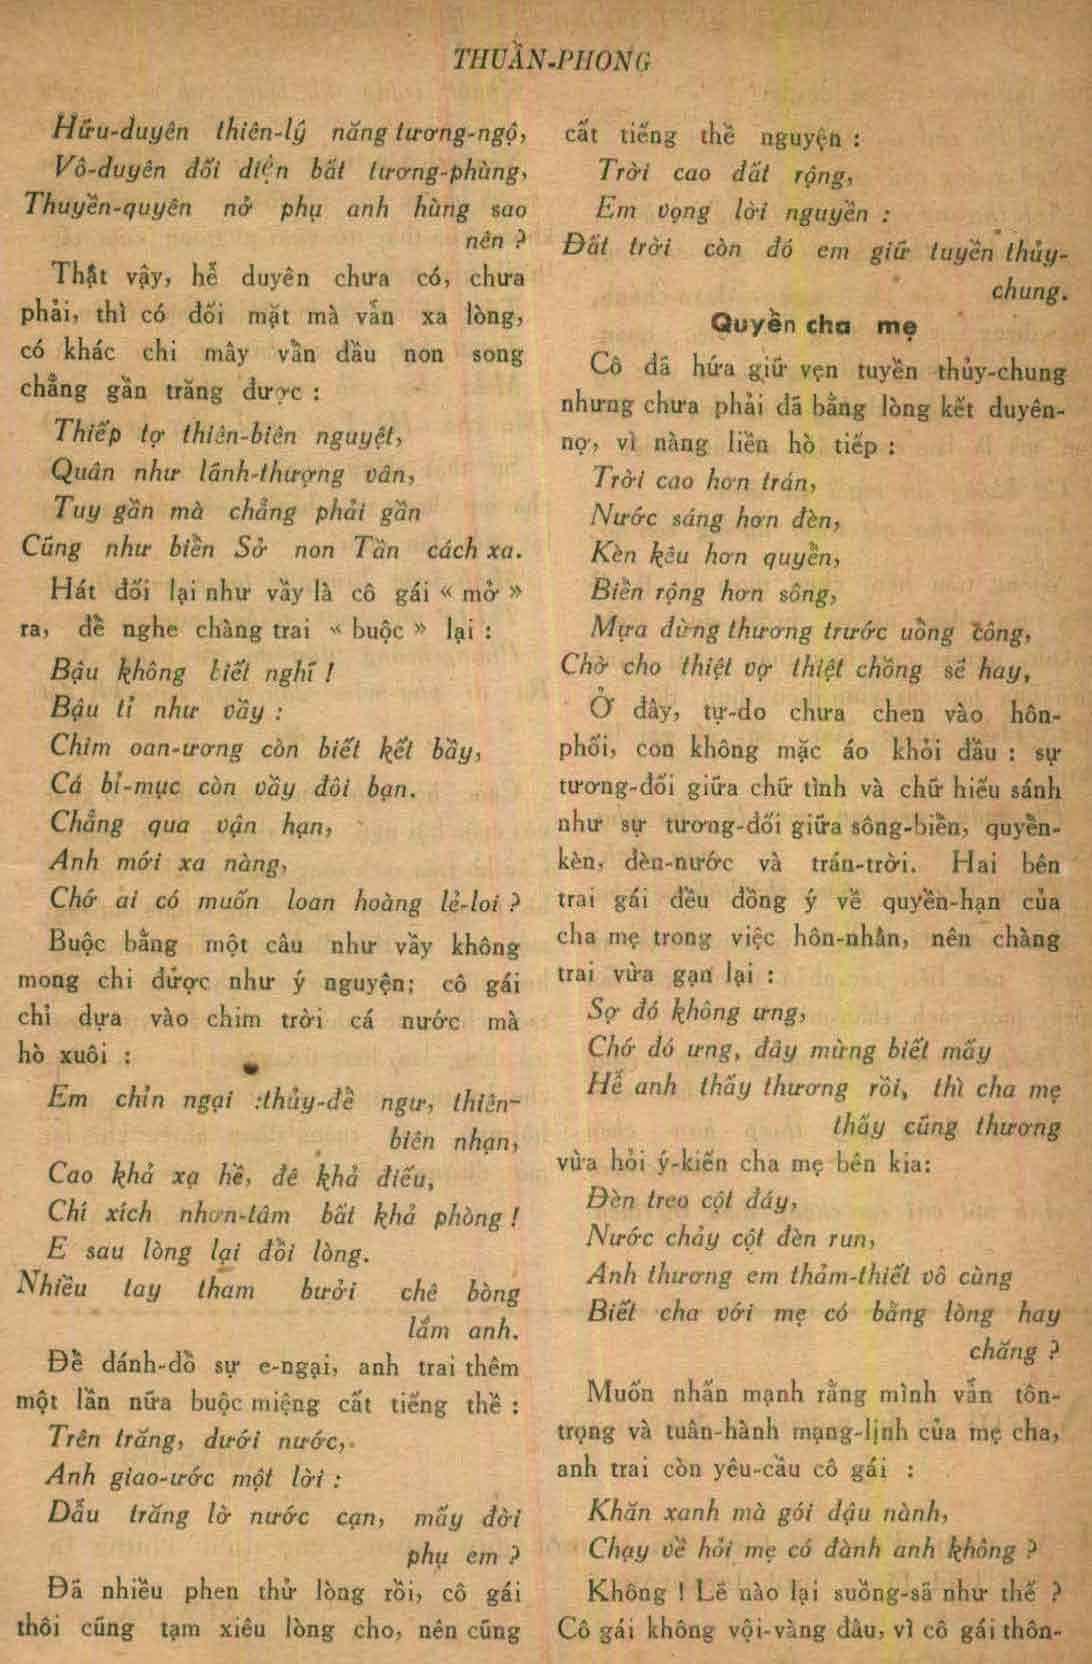 THUẦN-PHONG
Hữu-duyên thiên-lý năng tương-ngộ,
Vô-duyên đối diện bất tương-phùng,
Thuyền-quyên nở phụ anh hùng sao
nên ?
Thật vậy, hễ duyên chưa có, chưa
phải, thì có đối mặt mà vẫn xa lòng,
có khác chi mây vần đầu non song
chẳng gần trăng được :
Thiếp tợ thiên-biên nguyệt,
Quân như lãnh-thượng vân,
Tuy gần mà chẳng phải gần
Cũng như biển Sở non Tần cách xa.
Hát đối lại như vầy là cô gái « mở »
ra, để nghe chàng trai « buộc » lại :
Bậu không biết nghĩ !
Bậu tỉ như vầy :
Chim oan-ương còn biết kết bầy,
Cá bỉ-mục còn vầy đôi bạn.
Chẳng qua vận hạn,
Anh mới xa nàng,
Chớ ai có muốn loan hoàng lẻ-loi ?
Buộc bằng một câu như vầy không
mong chi được như ý nguyện; cô gái
chỉ dựa vào chim trời cá nước mà
hò xuôi :
Em chỉn ngại :thủy-để ngư, thiên-
biên nhạn,
Cao khả xạ hề, đê khả điếu,
Chí xích nhơn-tâm bất khả phòng !
E sau lòng lại đổi lòng.
Nhiều tay tham bưởi chê bòng
lắm anh.
Để đánh-đổ sự e-ngại, anh trai thêm
một lần nữa buộc miệng cất tiếng thề :
Trên trăng, dưới nước,
Anh giao-ước một lời :
Dẫu trăng lờ nước cạn, mấy đời
phụ em ?
Đã nhiều phen thử lòng rồi, cô gái
thôi cũng tạm xiêu lòng cho, nên cũng
cất tiếng thề nguyện :
Trời cao đất rộng,
Em vọng lời nguyền :
Đất trời còn đó em giữ tuyền thủy-
chung.
Quyền cha mẹ
Cô đã hứa giữ vẹn tuyền thủy-chung
nhưng chưa phải đã bằng lòng kết duyên-
nợ, vì nàng liền hò tiếp :
Trời cao hơn trán,
Nước sáng hơn đèn,
Kèn kêu hơn quyển,
Biển rộng hơn sông,
Mựa đừng thương trước uổng công,
Chờ cho thiệt vợ thiệt chồng sẽ hay,
Ở đây, tự-do chưa chen vào hôn-
phối, con không mặc áo khỏi đầu : sự
tương-đối giữa chữ tình và chữ hiếu sánh
như sự tương-đối giữa sông-biển, quyển-
kèn, đèn-nước và trán-trời. Hai bên
trai gái đều đồng ý về quyền-hạn của
cha mẹ trong việc hôn-nhân, nên chàng
trai vừa gạn lại :
Sợ đó không ưng,
Chớ đó ưng, đây mừng biết mấy
Hễ anh thấy thương rồi, thì cha mẹ
thấy cũng thương
vừa hỏi ý-kiến cha mẹ bên kia:
Đèn treo cột đáy,
Nước chảy cột đèn run,
Anh thương em thảm-thiết vô cùng
Biết cha với mẹ có bằng lòng hay
chăng ?
Muốn nhấn mạnh rằng mình vẫn tôn-
trọng và tuân-hành mạng-lịnh của mẹ cha,
anh trai còn yêu-cầu cô gái :
Khăn xanh mà gói đậu nành,
Chạy về hỏi mẹ có đành anh không ?
Không ! Lẽ nào lại suồng-sã như thế ?
Cô gái không vội-vàng đâu, vì cô gái thôn-